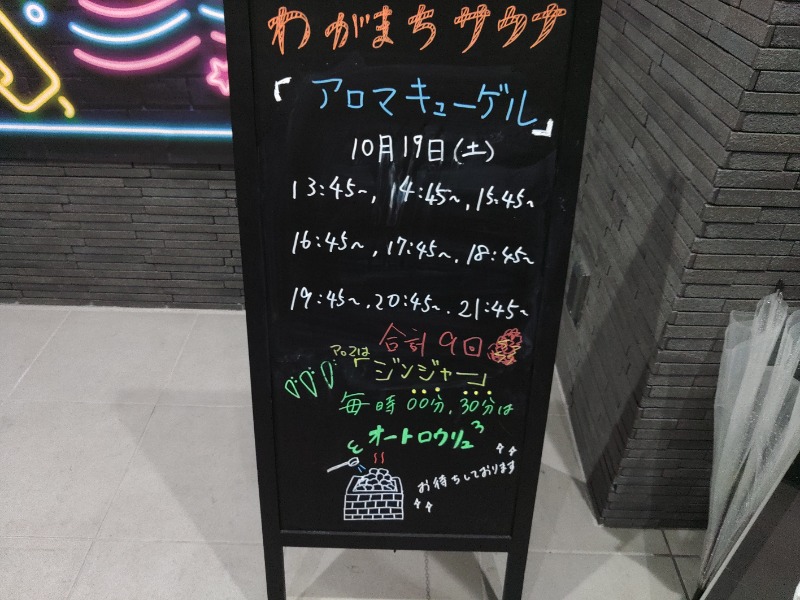 わがまちサウナ
「アロマキューゲル」
10月19日(土)
13:45~, 14:45~, 15:45~
16:45~, 17:45~, 18:45~
19:45~, 20:45~, 21:45~
合計9回
アロマは「ジンジャー」
毎時00分、30分は
オートロウリュ
お待ちしております